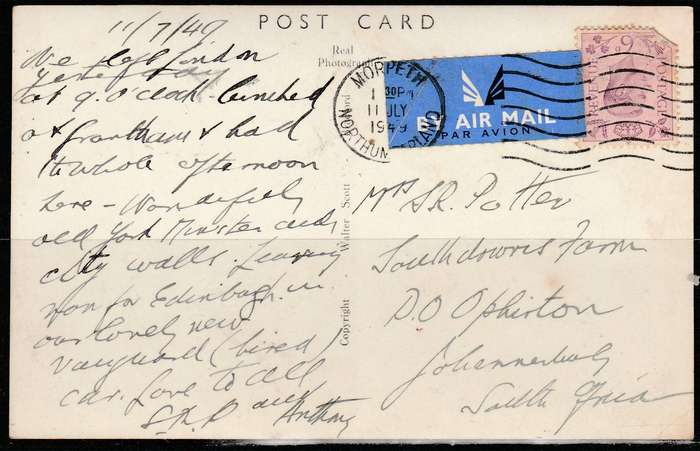 POST CARD
11/7/49
We left London
yesterday
at 9. o'clock lunched
at Grantham & had
the whole afternoon
here - Wonderfully
old York Minster and
city walls. Leaving
now for Edinburgh in
our lovely new
Vanguard (hired)
car. Love to all
S.R.P and Anthony
Real
Photograph
Copyright Walter Scott
MORPETH
30PM
11 JULY
1949
NORTHUMBERLAND
BY AIR MAIL
PAR AVION
6D
POSTAGE
REVENUE
Mrs S.R. Potter
Southdowns Farm
P.O Ophirton
Johannesburg
South Africa